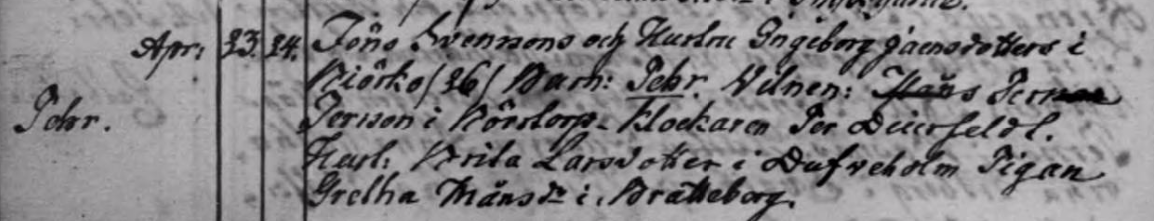 Apr: 23. 24. Jöns Svensons och Hustru Ingeborg Jaensdotters i
Biörkö (26) Barn: Pehr. Vitnen: Måns Person
Pehr.
Person i Börstorp. Klockaren Per Diurfeldt.
Hust: Brita Larsdotter i Dufveholm Pigan
Gretha Månsdr i Bratteborg.